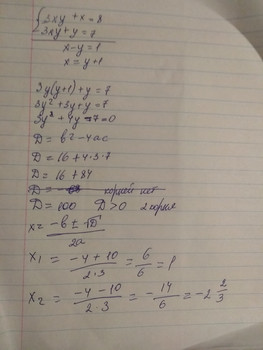 {3xy + x = 8
3xy + y = 7
x - y = 1
x = y+1
3y(y+1) + y = 7
3y² + 3y + y = 7
3y² + 4y - 7 = 0
D = b² - 4ac
D = 16 + 4·3·7
D = 16 + 84
D = -68 корней нет
D = 100 D > 0 2 корня
x = -b ± √D / 2a
x₁ = -4 + 10 / 2·3 = 6/6 = 1
x₂ = -4 - 10 / 2·3 = -14/6 = -2 2/3